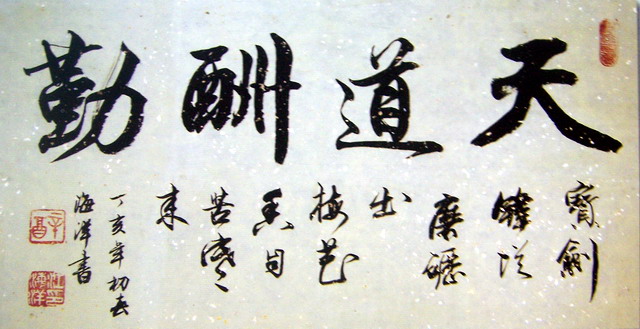 天道酬勤
寶劍
鋒從
磨礪
出
梅花
香自
苦寒
来
丁亥年初春
海洋書